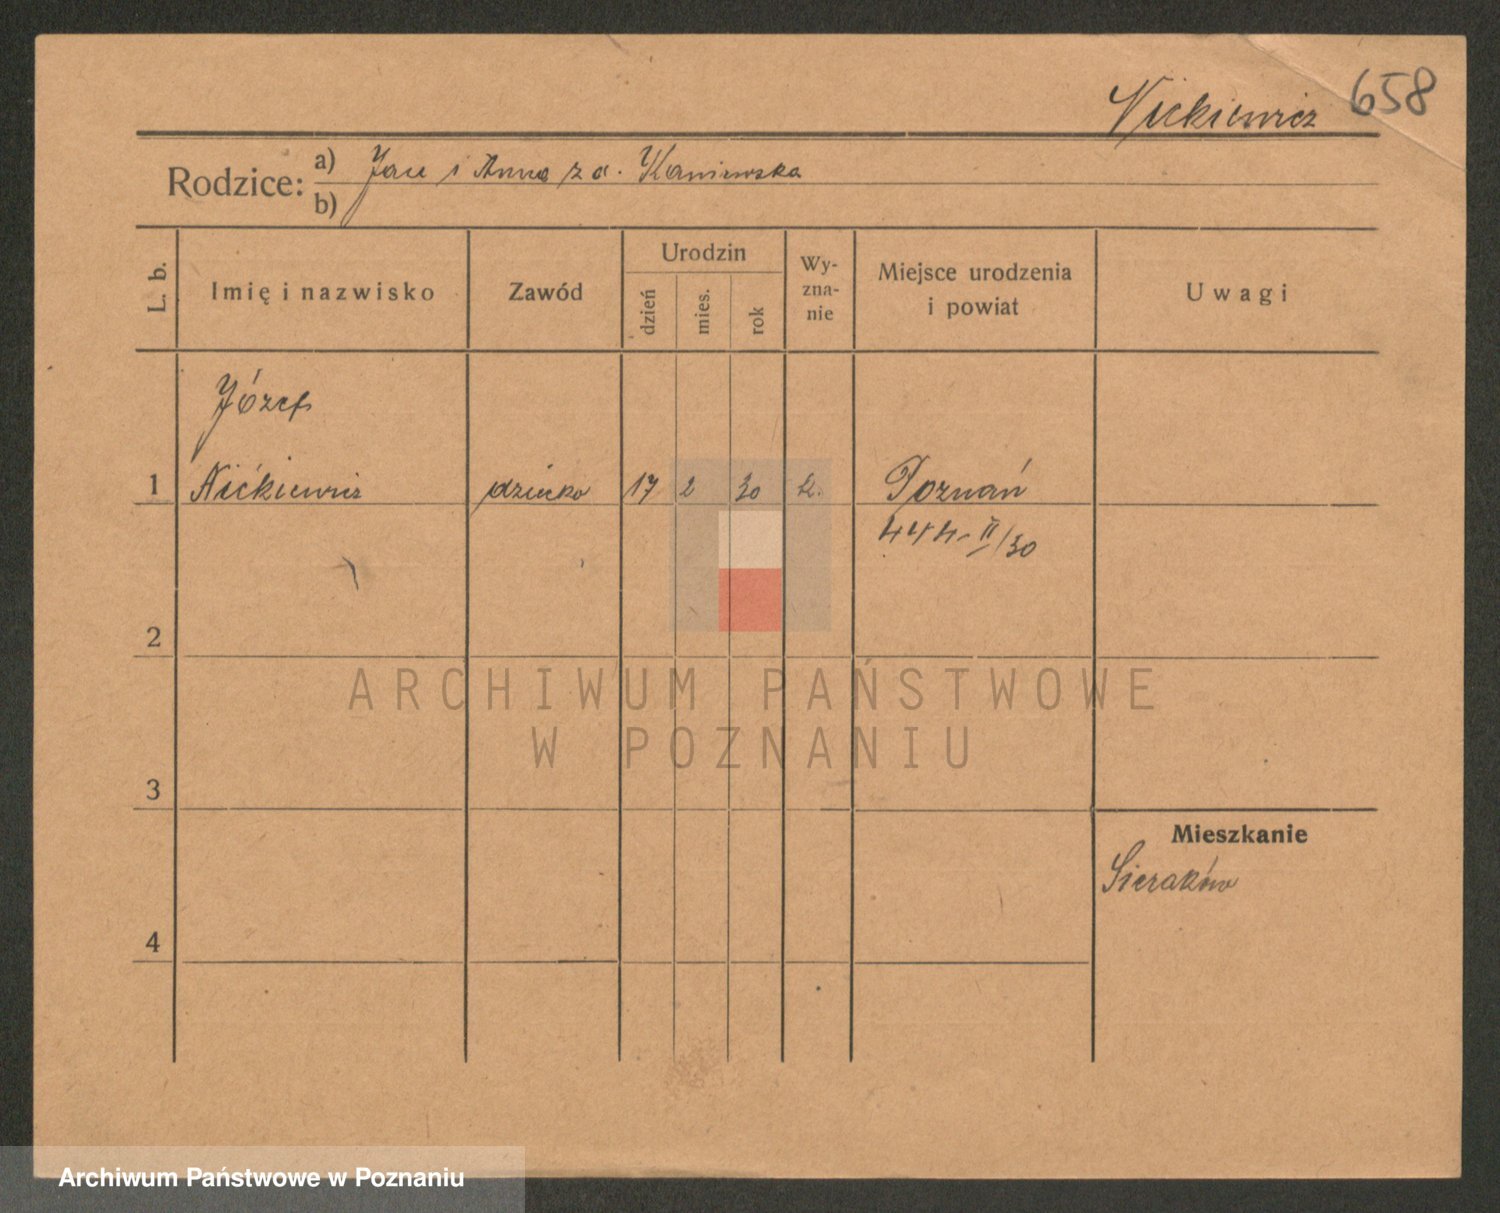 658
Nickiewicz
Rodzice: a) Jan i Anna z d. Kaniewska
b)
L. b.
Imię i nazwisko
Zawód
Urodzin
dzień
mies.
rok
Wy-
zna-
nie
Miejsce urodzenia
i powiat
Uwagi
Józef
1 Nićkiewicz dziecko 17 2 30 k. Poznań
444 II/30
2
3
4
Mieszkanie
Sieraków
ARCHIWUM PAŃSTWOWE
W POZNANIU
Archiwum Państwowe w Poznaniu